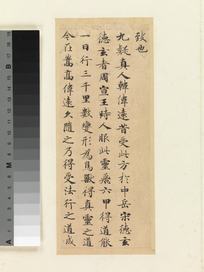 致也
九疑真人韓偉遠昔受此方於中岳宋德玄
德玄者周宣王時人服此靈飛六甲得道能
一日行三千里數變形為鳥獸得真靈之道
今在嵩高偉遠久隨之乃得受法行之道成